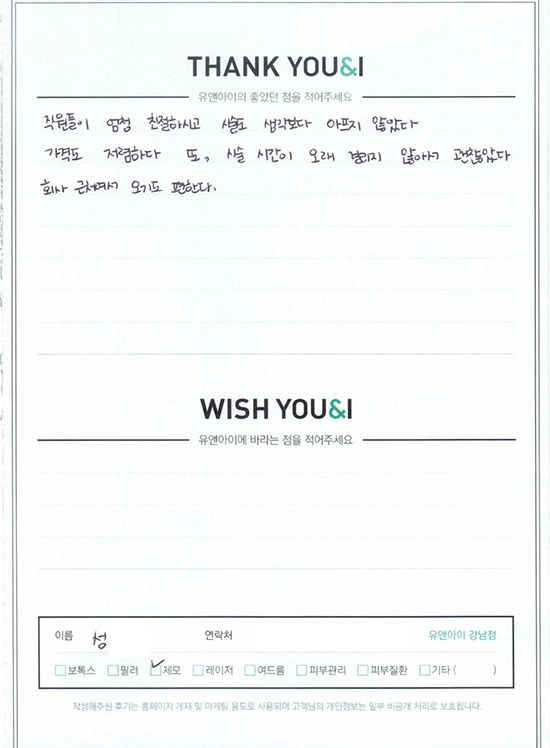 THANK YOU&I
유앤아이의 좋았던 점을 적어주세요
직원들이 엄청 친절하시고 시술도 생각보다 아프지 않았다
가격도 저렴하다 또, 시술 시간이 오래 걸리지 않아서 괜찮았다
회사 근처여서 오기도 편한다.
WISH YOU&I
유앤아이에 바라는 점을 적어주세요
이름 성 연락처 유앤아이 강남점
보톡스 필러 제모 레이저 여드름 피부관리 피부질환 기타 ( )
작성해주신 후기는 홈페이지 개재 및 마케팅 용도로 사용되며 고객님의 개인정보는 일부 비공개 처리로 보호됩니다.